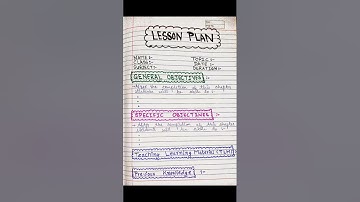 LESSON PLAN
NAME :- TOPIC :-
CLASS :- DATE :-
SUBJECT :- DURATION :-
GENERAL OBJECTIVES :-
After the completion of this chapter
students will be able to :-
SPECIFIC OBJECTIVES :-
After the completion of this chapter
students will be able to :-
Teaching Learning Material (TLM) :-
Previous Knowledge :-